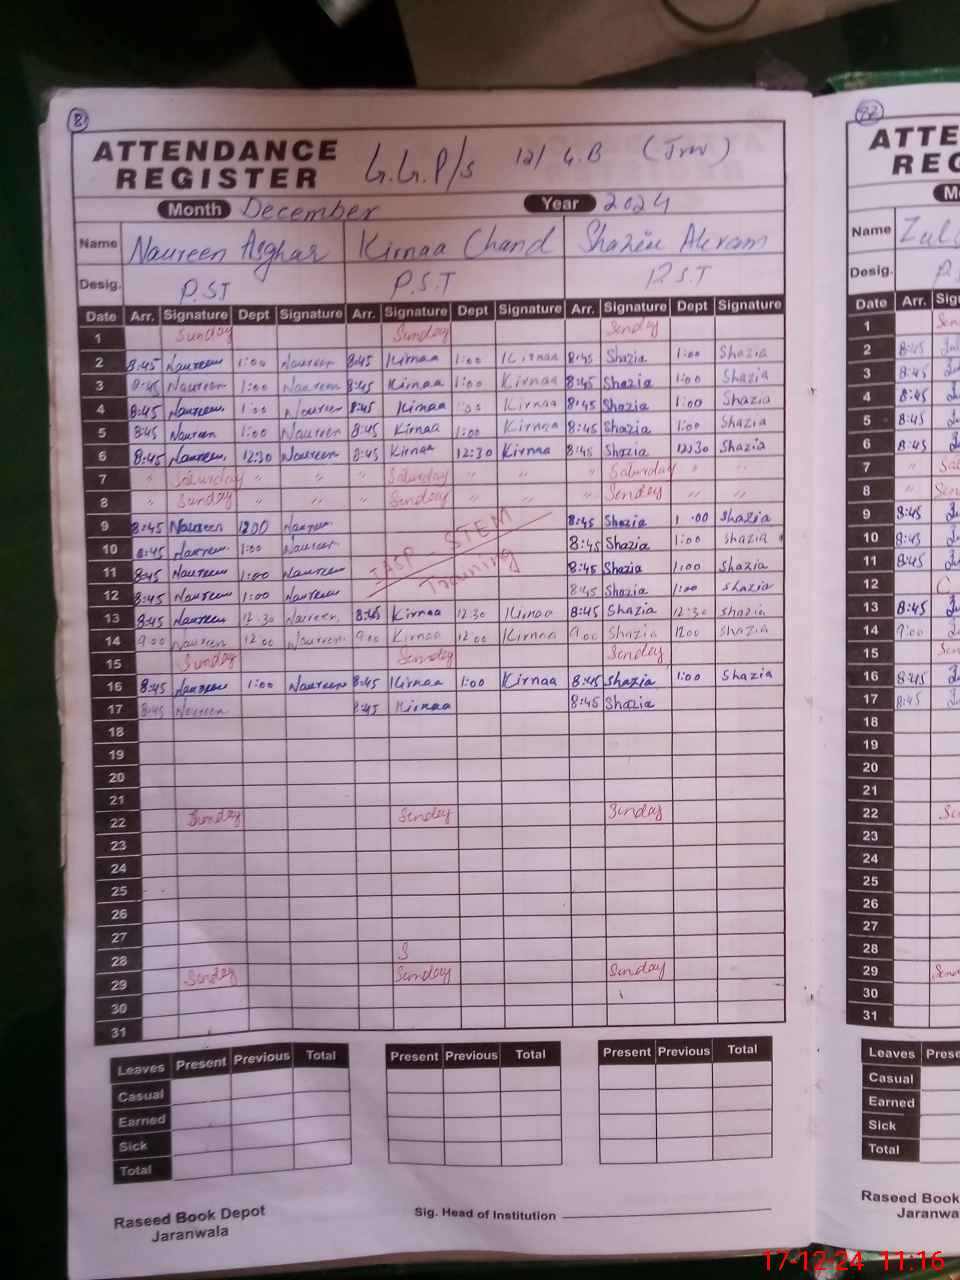 ATTENDANCE
REGISTER
G.G.P/s 12/ G.B (Jrw)
Month December Year 2024
Name Naureen Asghar Kirnaa Chand Shazia Akram
Desig. P.ST P.S.T P.S.T
Date Arr. Signature Dept Signature Arr. Signature Dept Signature Arr. Signature Dept Signature
1 Sunday Sunday Sunday
2 8:45 Naureen 1:00 Naureen 8:45 Kirnaa 1:00 Kirnaa 8:45 Shazia 1:00 Shazia
3 8:45 Naureen 1:00 Naureen 8:45 Kirnaa 1:00 Kirnaa 8:45 Shazia 1:00 Shazia
4 8:45 Naureen 1:00 Naureen 8:45 Kirnaa 1:00 Kirnaa 8:45 Shazia 1:00 Shazia
5 8:45 Naureen 1:00 Naureen 8:45 Kirnaa 1:00 Kirnaa 8:45 Shazia 1:00 Shazia
6 8:45 Naureen 12:30 Naureen 8:45 Kirnaa 12:30 Kirnaa 8:45 Shazia 12:30 Shazia
7 " Saturday " " " Saturday " " " Saturday " "
8 " Sunday " " " Sunday " " " Sunday " "
9 8:45 Naureen 1200 Naureen 8:45 Shazia 1:00 Shazia
10 8:45 Naureen 1:00 Naureen 8:45 Shazia 1:00 Shazia
STEM
Training
11 8:45 Naureen 1:00 Naureen 8:45 Shazia 1:00 Shazia
12 8:45 Naureen 1:00 Naureen 8:45 Shazia 1:00 Shazia
13 8:45 Naureen 12:30 Naureen 8:45 Kirnaa 12:30 Kirnaa 8:45 Shazia 12:30 Shazia
14 9:00 Naureen 12:00 Naureen 9:00 Kirnaa 12:00 Kirnaa 9:00 Shazia 12:00 Shazia
15 Sunday Sunday Sunday
16 8:45 Naureen 1:00 Naureen 8:45 Kirnaa 1:00 Kirnaa 8:45 Shazia 1:00 Shazia
17 8:45 Naureen 8:45 Kirnaa 8:45 Shazia
18
19
20
21
22 Sunday Sunday Sunday
23
24
25
26
27
28 S
29 Sunday Sunday Sunday
30
31
Leaves Present Previous Total Present Previous Total Present Previous Total
Casual
Earned
Sick
Total
Raseed Book Depot
Jaranwala
Sig. Head of Institution
92
Name
Desig.
Date Arr.
1
2 8:45
3 8:45
4 8:45
5 8:45
6 8:45
7 "
8 "
9 8:45
10 8:45
11 8:45
12
13 8:45
14 9:00
15
16 8:45
17 8:45
18
19
20
21
22
23
24
25
26
27
28
29
30
31
Leaves
Casual
Earned
Sick
Total
Raseed Book
17-12-24 11:16